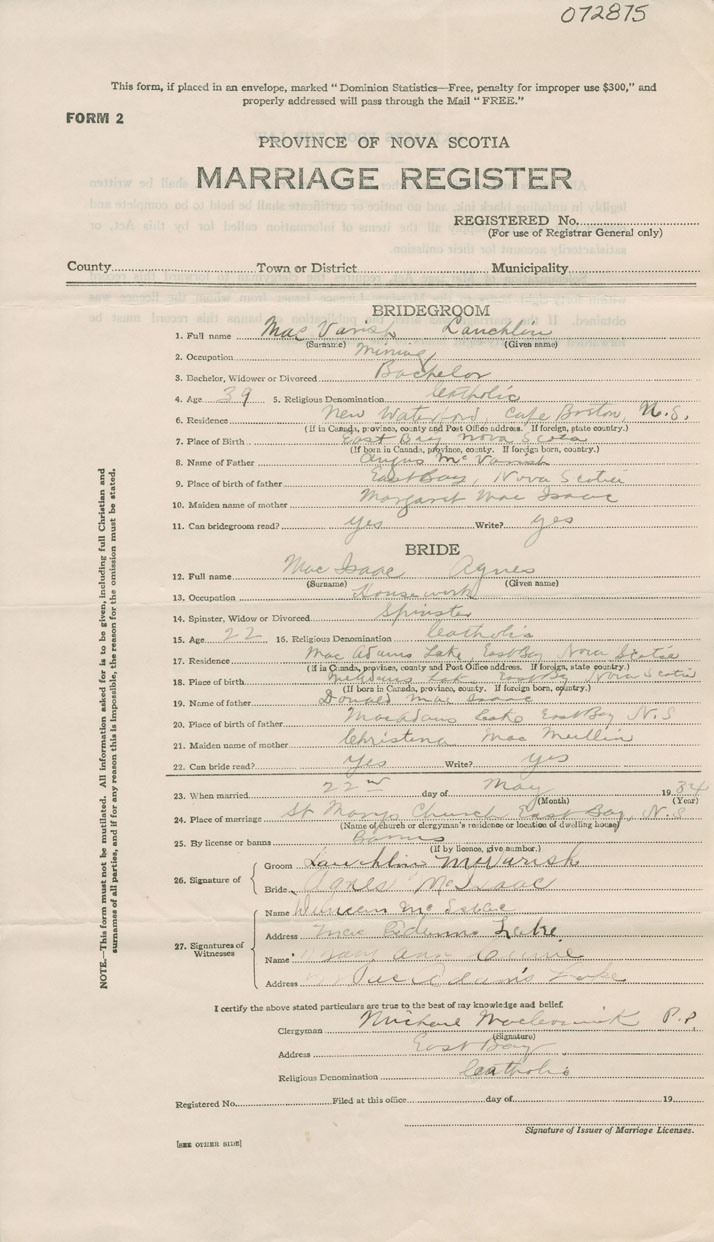 072875
This form, if placed in an envelope, marked "Dominion Statistics—Free, penalty for improper use $300," and
properly addressed will pass through the Mail "FREE."
FORM 2
PROVINCE OF NOVA SCOTIA
MARRIAGE REGISTER
REGISTERED No.
(For use of Registrar General only)
County Town or District Municipality
BRIDEGROOM
1. Full name Mac Varish Lauchlin
(Surname) (Given name)
2. Occupation Mining
3. Bachelor, Widower or Divorced Bachelor
4. Age 39 5. Religious Denomination Catholic
6. Residence New Waterford, Cape Breton, N.S.
(If in Canada, province, county and Post Office address. If foreign, state country.)
7. Place of Birth East Bay Nova Scotia
(If born in Canada, province, county. If foreign born, country.)
8. Name of Father Angus McVarish
9. Place of birth of father East Bay, Nova Scotia
10. Maiden name of mother Margaret Mac Isaac
11. Can bridegroom read? yes Write? yes
BRIDE
12. Full name Mac Isaac Agnes
(Surname) (Given name)
13. Occupation Housework
14. Spinster, Widow or Divorced Spinster
15. Age 22 16. Religious Denomination Catholic
17. Residence Mac Adams Lake, East Bay Nova Scotia
(If in Canada, province, county and Post Office address. If foreign, state country.)
18. Place of birth McAdams Lake East Bay Nova Scotia
(If born in Canada, province, county. If foreign born, country.)
19. Name of father Donald Mac Isaac
20. Place of birth of father MacAdams Lake East Bay N.S
21. Maiden name of mother Christena Mac Mullin
22. Can bride read? yes Write? yes
23. When married 22nd day of May 1934
(Month) (Year)
24. Place of marriage St Marys Church East Bay, N.S
(Name of church or clergyman's residence or location of dwelling house)
25. By license or banns Banns
(If by licence, give number.)
26. Signature of
Groom Lauchlin McVarish
Bride Agnes McIsaac
27. Signatures of Witnesses
Name Duncan McIsaac
Address Mac Adams Lake
Name Ann Currie
Address MacAdam's Lake
I certify the above stated particulars are true to the best of my knowledge and belief.
Clergyman Michael P.P.
(Signature)
Address East Bay
Religious Denomination Catholic
Registered No. Filed at this office day of 19
Signature of Issuer of Marriage Licenses.
[SEE OTHER SIDE]
NOTE.—This form must not be mutilated. All information asked for is to be given, including full Christian and
surnames of all parties, and if for any reason this is impossible, the reason for the omission must be stated.